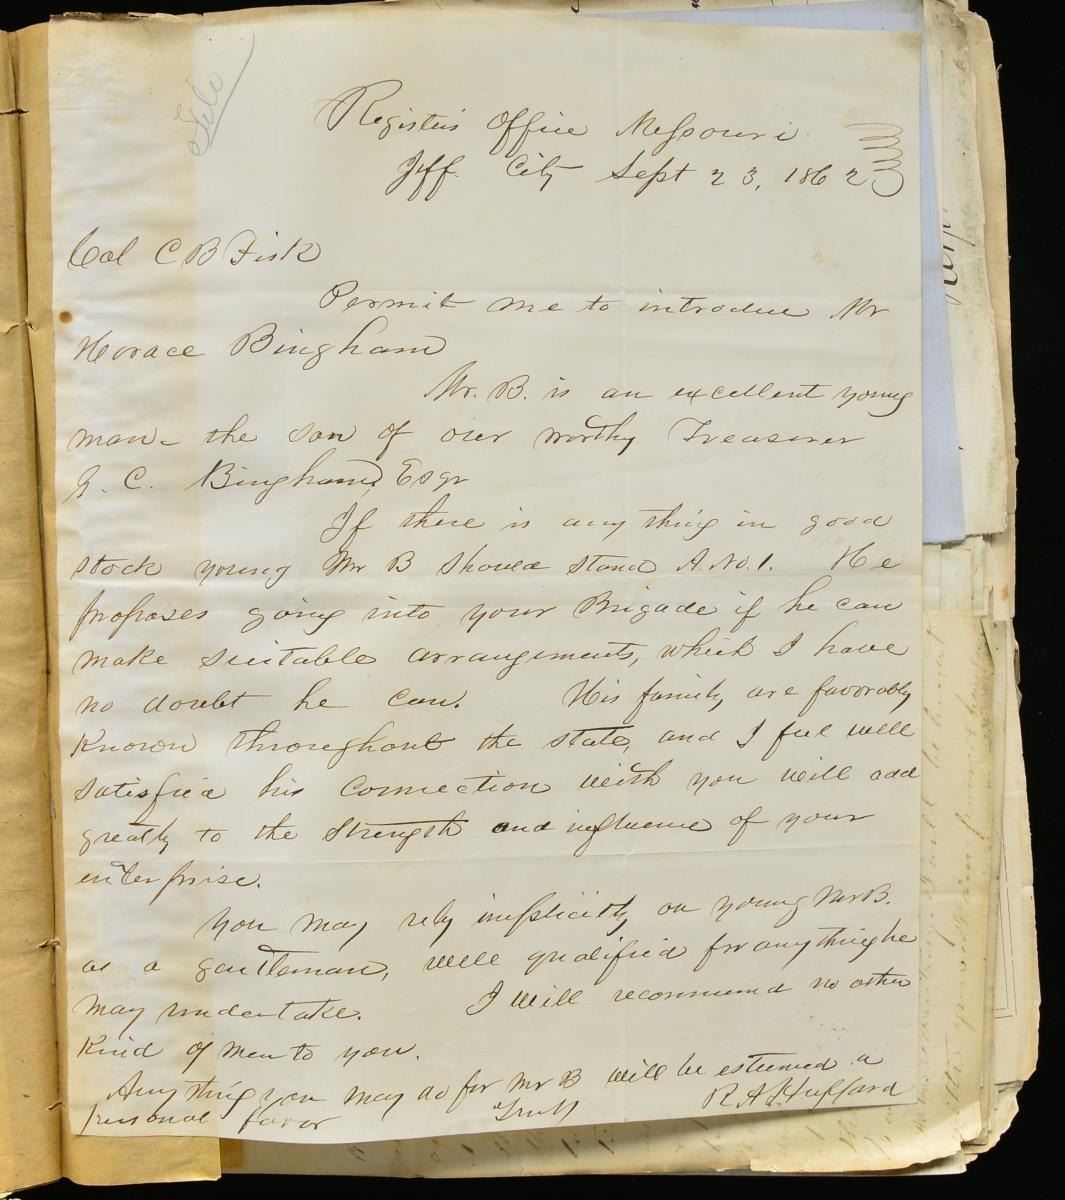 File
Register's Office Missouri
Jeff. City Sept 23, 1862
Col C B Fisk
Permit me to introduce Mr
Horace Bingham
Mr. B. is an excellent young
man - the son of our worthy Treasurer
G. C. Bingham, Esqr
If there is any thing in good
stock young Mr B should stand A. No. 1. He
proposes going into your Brigade if he can
make suitable arrangements, which I have
no doubt he can. His family are favorably
known throughout the state, and I feel well
satisfied his connection with you will add
greatly to the strength and influence of your
enterprise.
You may rely implicitly on young Mr B.
as a gentleman, well qualified for any thing he
may undertake. I will recommend no other
kind of men to you.
Any thing you may do for Mr B will be esteemed a
personal favor Truly R A Huffard